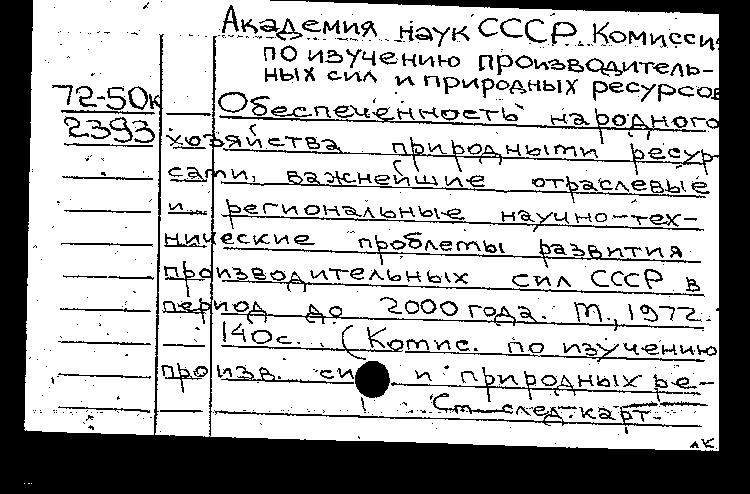 Академия наук СССР. Комисси
по изучению производитель-
ных сил и природных ресурсов
72-50к Обеспеченность народного
2393 хозяйства природными ресур-
сами, важнейшие отраслевые
и региональные научно-тех-
нические проблемы развития
производительных сил СССР в
период до 2000 года. М., 1972.
140с. (Комис. по изучению
произв. си и природных ре-
См след. карт.
лк